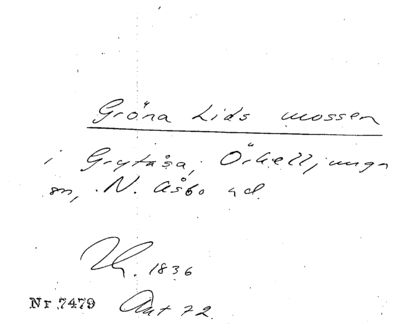 Gröna Lids mossen
i Grytåsa, Örkelljunga
sn, N. Åsbo hd.
1836
Nr 7479 Ant 72